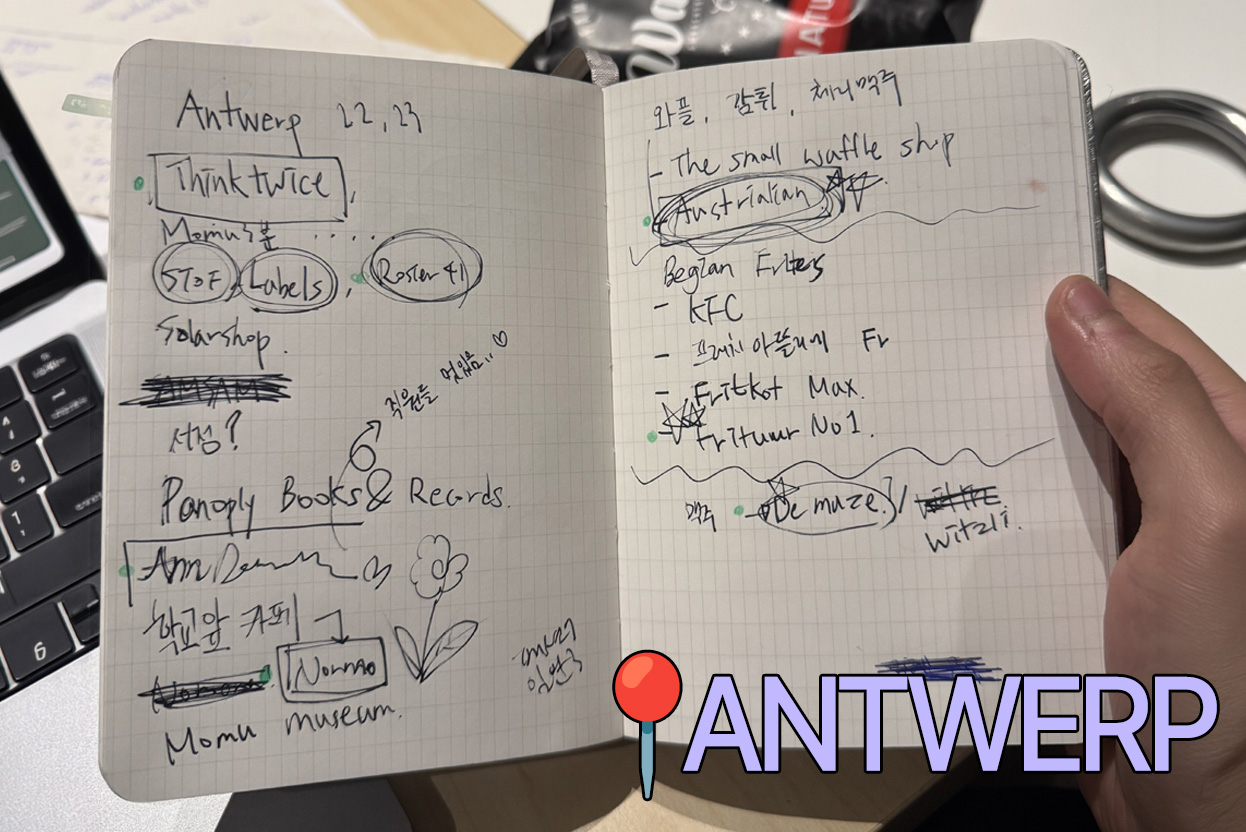 Antwerp 22, 23
Think twice,
Momu
STOF, Labels, Roster 41
Solarshop.
서점?
직원들 멋있음.. ♡
Panoply Books & Records.
Ann
학교앞 카페
Normo
Momu museum.
와플, 감튀, 체리맥주
- The small waffle shop
- Australian
Begian Frites
- KFC
- Fr
- Fritkot Max.
- Frituur No 1.
맥주 - De muze. / Witzli.
ANTWERP